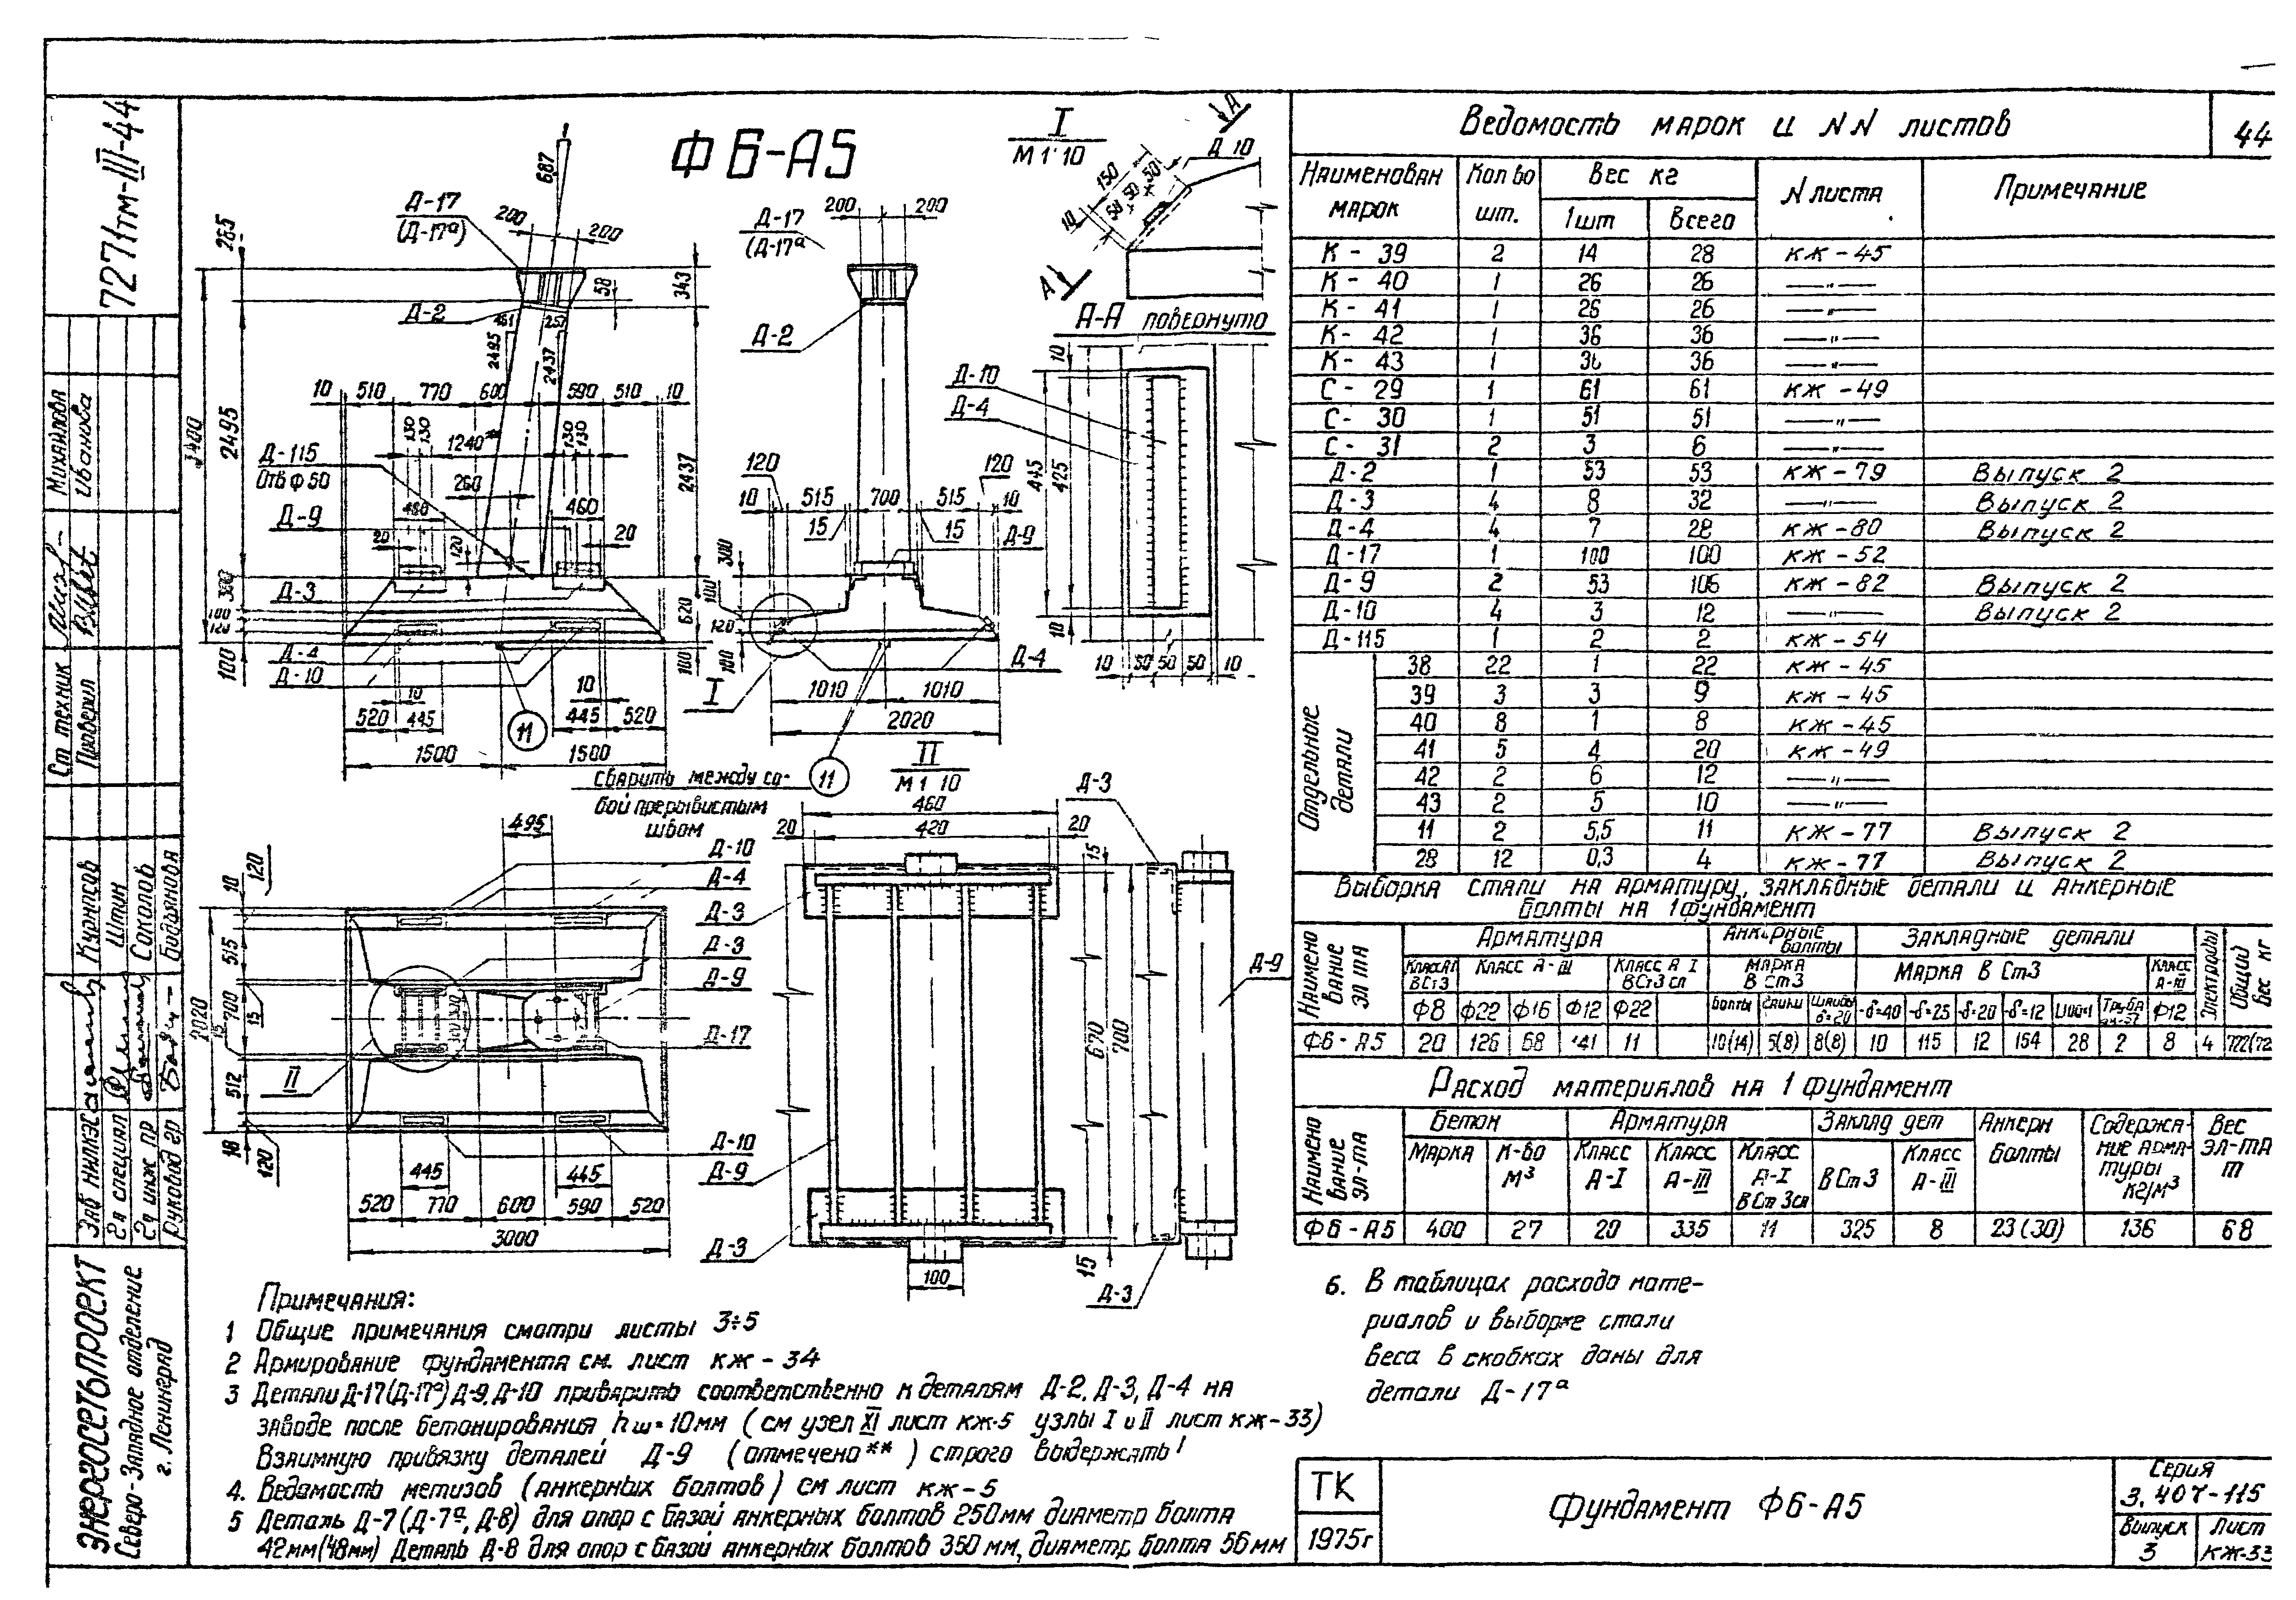 7271тм-III-44
Ф6-А5
I
М 1:10
А
Д-10
150
50 50 50
10
А
А-А повернуто
687
Д-17
(Д-17а)
200
200
265
58
343
Д-2
461
257
2495
2437
10 510 770 600 590 510 10
130 130
1240**
130 130
3400
2495
2437
Д-115
Отв ф 50
260
Д-9
460
460
20
20
120
300
Д-3
100
120
100
620
180
Д-4
Д-10
10
10
520 445
445 520
11
1500 1500
Д-17
(Д-17а
200 200
Д-2
120
120
10 515 700 515 10
15 15
Д-9
300
100
120
100
Д-4
I
1010 1010
2020
11
10
Д-10
Д-4
445
425
10
10 30 50 50 10
сварить между со-
бой прерывистым
швом
II
М 1 10
460
20 420 20
Д-3
15
495
Д-10
Д-4
Д-3
Д-3
Д-9
Д-17
120
10
515
700
15
15
2020
512
10
120
II
Д-10
Д-9
Д-3
445 445
520 770 600 590 520
3000
670
700
Д-9
100
15
Д-3
Примечания:
1 Общие примечания смотри листы 3÷5
2 Армирование фундамента см. лист кж-34
3 Детали Д-17(Д-17а) Д-9, Д-10 приварить соответственно к деталям Д-2, Д-3, Д-4 на
заводе после бетонирования hш=10мм (см узел XI лист кж-5 узлы I и II лист кж-33)
Взаимную привязку деталей Д-9 (отмечено**) строго выдержать!
4. Ведомость метизов (анкерных болтов) см лист кж-5
5 Деталь Д-7(Д-7а, Д-8) для опор с базой анкерных болтов 250мм диаметр болта
42мм(48мм) Деталь Д-8 для опор с базой анкерных болтов 350 мм, диаметр болта 56мм
6. В таблицах расхода мате-
риалов и выборке стали
веса в скобках даны для
детали Д-17а
Ведомость марок и NN листов 44
Наименован марок Кол во шт. Вес кг N листа Примечание
1шт Всего
К-39 2 14 28 кж-45
К-40 1 26 26 —"—
К-41 1 26 26 —"—
К-42 1 36 36 —"—
К-43 1 36 36 —"—
С-29 1 61 61 кж-49
С-30 1 51 51 —"—
С-31 2 3 6 —"—
Д-2 1 53 53 кж-79 Выпуск 2
Д-3 4 8 32 —"— Выпуск 2
Д-4 4 7 28 кж-80 Выпуск 2
Д-17 1 100 100 кж-52
Д-9 2 53 106 кж-82 Выпуск 2
Д-10 4 3 12 —"— Выпуск 2
Д-115 1 2 2 кж-54
Отдельные детали
38 22 1 22 кж-45
39 3 3 9 кж-45
40 8 1 8 кж-45
41 5 4 20 кж-49
42 2 6 12 —"—
43 2 5 10 —"—
11 2 5,5 11 кж-77 Выпуск 2
28 12 0,3 4 кж-77 Выпуск 2
Выборка стали на арматуру, закладные детали и анкерные
болты на 1 фундамент
Наименование эл та Арматура Анкерные болты Закладные детали Электроды Общий вес кг
Класс А I ВСт3 Класс А-III Класс А I ВСт3 сп Марка ВСт3 Марка ВСт3 Класс А-III
Ф8 Ф22 Ф16 Ф12 Ф22 Болты Гайки Шайбы δ=20 -δ=40 -δ=25 -δ=20 -δ=12 Труба Ф12
Ф6-А5 20 126 68 141 11 10(14) 5(8) 8(8) 10 115 12 154 28 2 8 4 722(72
Расход материалов на 1 фундамент
Наименование эл-та Бетон Арматура Заклад дет Анкерн болты Содержание арматуры кг/м³ Вес эл-та т
Марка К-во м³ Класс А-I Класс А-III Класс А-I ВСт 3сп ВСт3 Класс А-III
Ф6-А5 400 27 20 335 11 325 8 23(30) 136 68
ТК
1975г
Фундамент Ф6-А5
Серия
3.407-115
Выпуск
3
Лист
КЖ-33
Михайлова
Иванова
Ст техник
Проверил
Курносов
Штин
Соколов
Зав НИЛКЭС
Гл специал
Гл инж пр
Руковод гр
ЭНЕРГОСЕТЬПРОЕКТ
Северо-Западное отделение
г. Ленинград